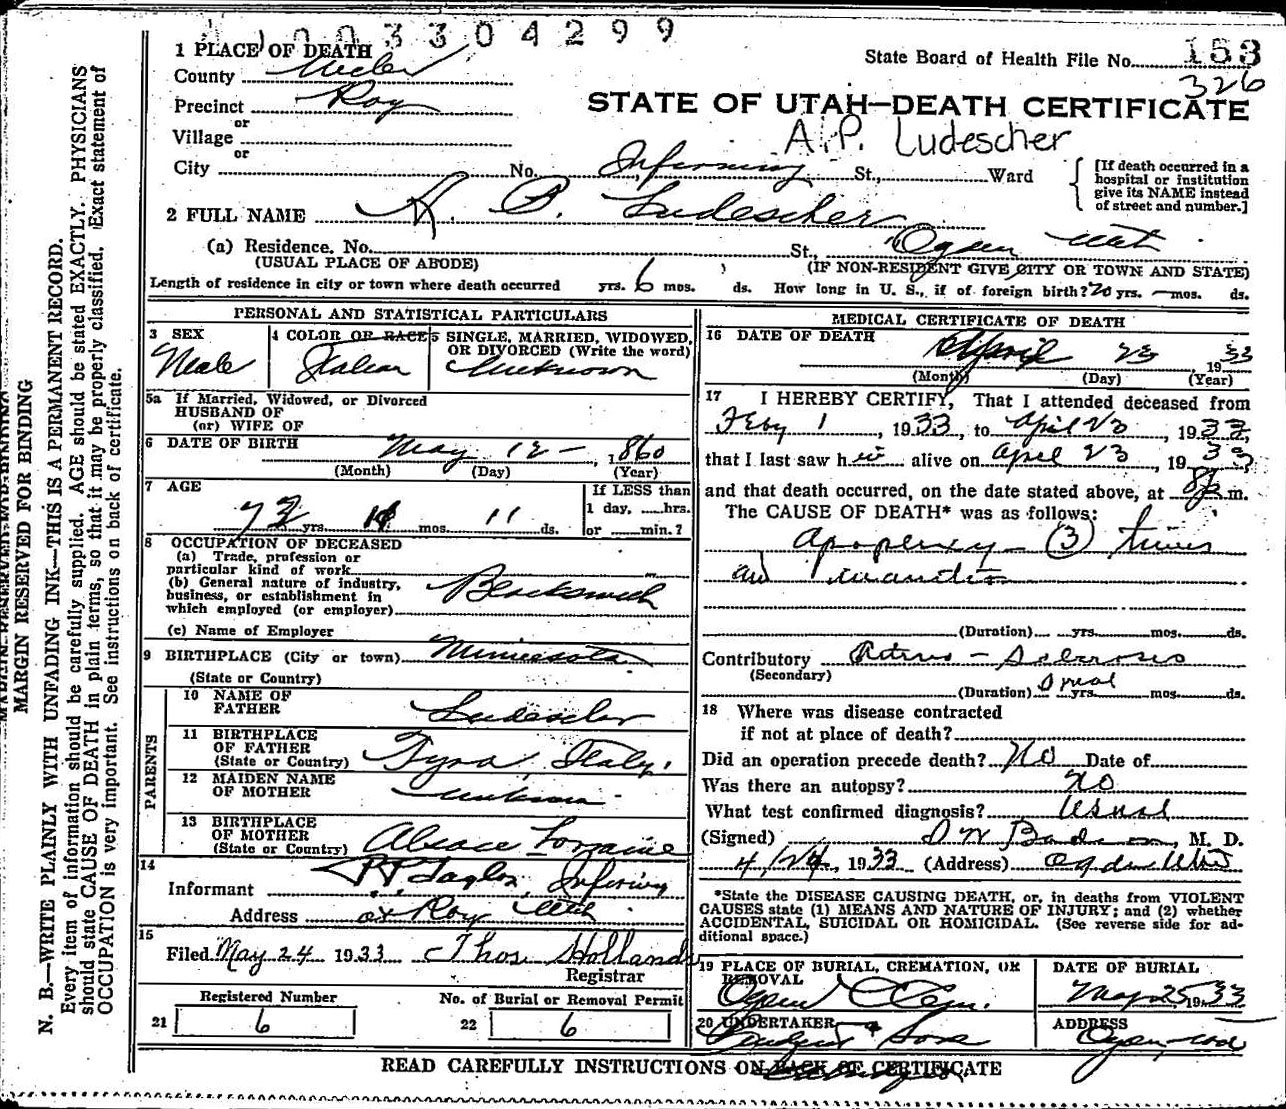 003304299
1 PLACE OF DEATH
State Board of Health File No. 153
326
County Weber
Precinct Roy
or
Village
or
City No. Infirmary St., Ward
STATE OF UTAH—DEATH CERTIFICATE
A.P. Ludescher
[If death occurred in a hospital or institution give its NAME instead of street and number.]
2 FULL NAME A. P. Ludescher
(a) Residence. No. St., Ogden Utah
(USUAL PLACE OF ABODE) (IF NON-RESIDENT GIVE CITY OR TOWN AND STATE)
Length of residence in city or town where death occurred yrs. 6 mos. ds. How long in U. S., if of foreign birth? 20 yrs. — mos. ds.
PERSONAL AND STATISTICAL PARTICULARS
3 SEX
Male
4 COLOR OR RACE
Italian
5 SINGLE, MARRIED, WIDOWED, OR DIVORCED (Write the word)
Unknown
5a If Married, Widowed, or Divorced
HUSBAND OF
(or) WIFE OF
6 DATE OF BIRTH May 12 — 1860
(Month) (Day) (Year)
7 AGE
yrs. mos. 11 ds.
If LESS than
1 day, hrs.
or min.?
8 OCCUPATION OF DECEASED
(a) Trade, profession or
particular kind of work
(b) General nature of industry,
business, or establishment in
which employed (or employer)
Blacksmith
(c) Name of Employer
9 BIRTHPLACE (City or town) Minnesota
(State or Country)
PARENTS
10 NAME OF
FATHER Ludescher
11 BIRTHPLACE
OF FATHER
(State or Country) Italy.
12 MAIDEN NAME
OF MOTHER Unknown
13 BIRTHPLACE
OF MOTHER
(State or Country) Alsace Lorraine
14
Informant Taylor, Infirmary
Address at Roy Utah
15
Filed May 24 1933 Thos Hollands
Registrar
Registered Number
21 6
No. of Burial or Removal Permit
22 6
MEDICAL CERTIFICATE OF DEATH
16 DATE OF DEATH
April 23 1933
(Month) (Day) (Year)
17 I HEREBY CERTIFY, That I attended deceased from
Feby 1, 1933, to April 23, 1933,
that I last saw him alive on April 23, 1933
and that death occurred, on the date stated above, at 8 p m.
The CAUSE OF DEATH* was as follows:
Apoplexy — (3) times
and inanition
(Duration) yrs. mos. ds.
Contributory Arterio - Sclerosis
(Secondary)
(Duration) yrs. mos. ds.
18 Where was disease contracted
if not at place of death?
Did an operation precede death? NO Date of
Was there an autopsy? NO
What test confirmed diagnosis? Usual
(Signed) M. D.
4/24, 1933 (Address) Ogden Utah
*State the DISEASE CAUSING DEATH, or, in deaths from VIOLENT
CAUSES state (1) MEANS AND NATURE OF INJURY; and (2) whether
ACCIDENTAL, SUICIDAL OR HOMICIDAL. (See reverse side for ad-
ditional space.)
19 PLACE OF BURIAL, CREMATION, OR
REMOVAL
Ogden C Cem.
DATE OF BURIAL
May 25, 1933
20 UNDERTAKER
& Sons
ADDRESS
Ogden,
READ CAREFULLY INSTRUCTIONS ON BACK OF CERTIFICATE
MARGIN RESERVED FOR BINDING
N. B.—WRITE PLAINLY WITH UNFADING INK—THIS IS A PERMANENT RECORD.
Every item of information should be carefully supplied. AGE should be stated EXACTLY. PHYSICIANS
should state CAUSE OF DEATH in plain terms, so that it may be properly classified. Exact statement of
OCCUPATION is very important. See instructions on back of certificate.